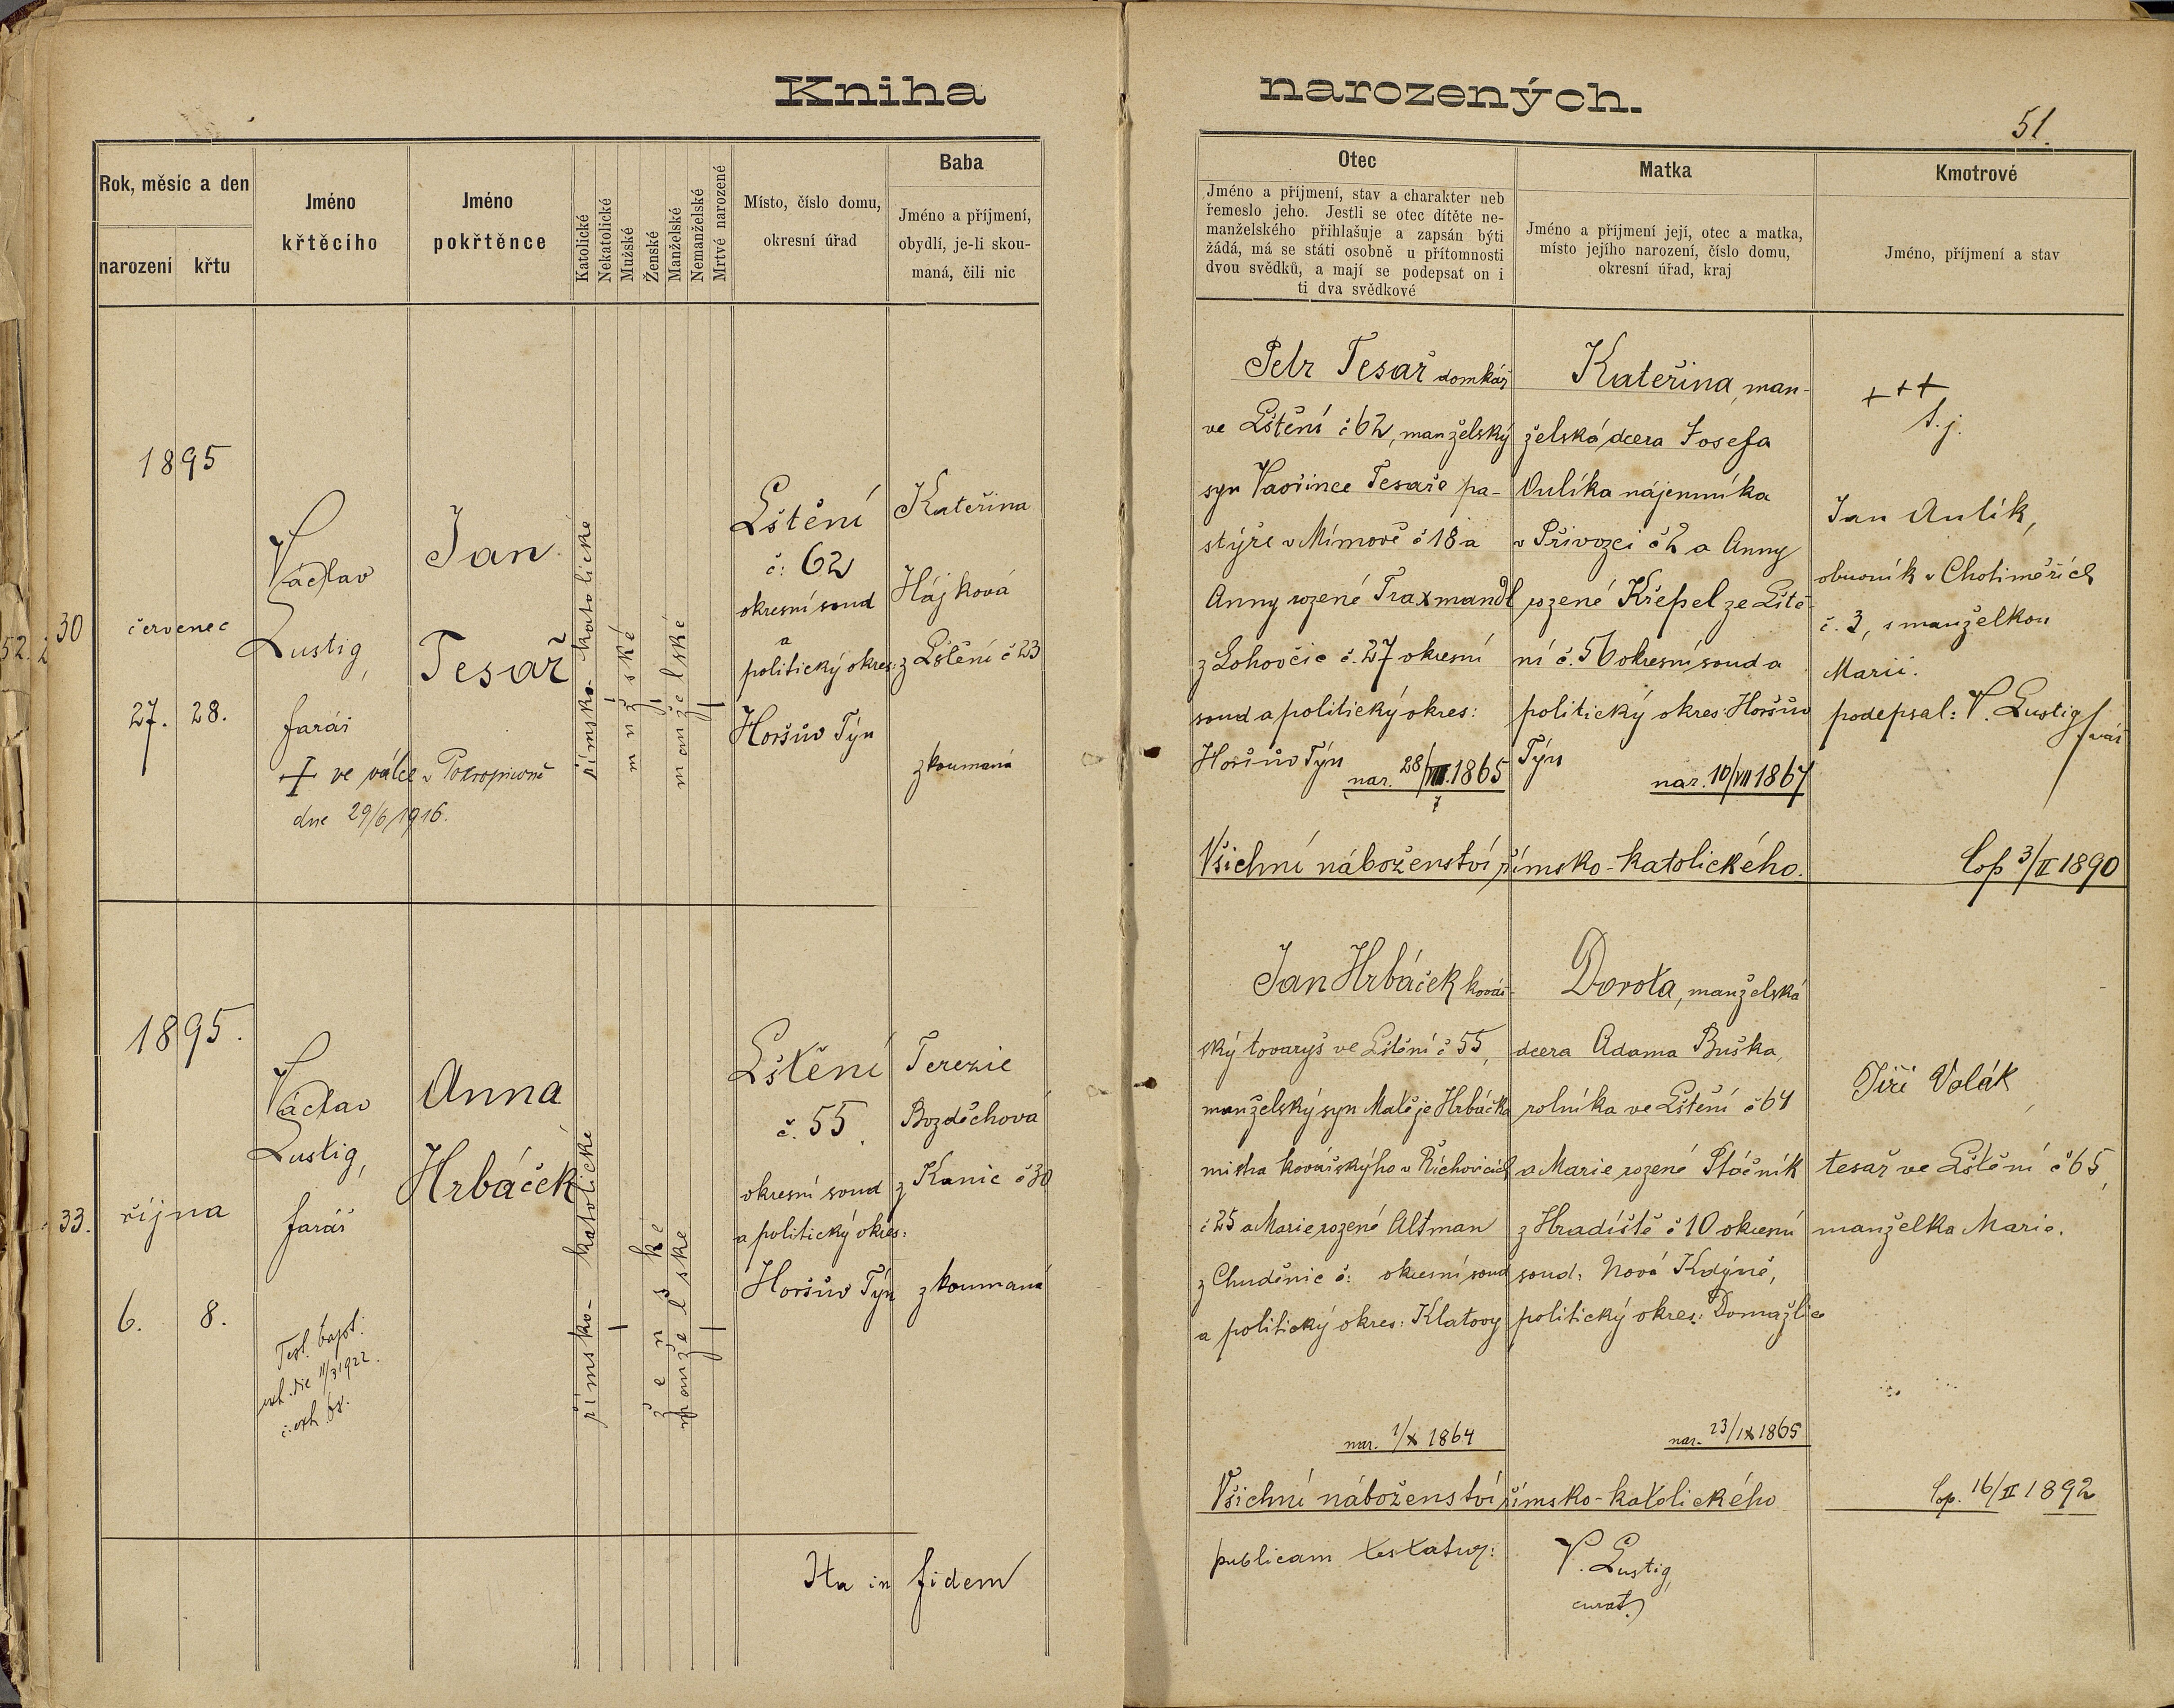 Kniha
narozených.
51.
Rok, měsíc a den
narození
křtu
Jméno
křtěcího
Jméno
pokřtěnce
Katolické
Nekatolické
Mužské
Ženské
Manželské
Nemanželské
Mrtvé narozené
Místo, číslo domu,
okresní úřad
Baba
Jméno a příjmení,
obydlí, je-li skou-
maná, čili nic
Otec
Jméno a příjmení, stav a charakter neb
řemeslo jeho. Jestli se otec dítěte ne-
manželského přihlašuje a zapsán býti
žádá, má se státi osobně u přítomnosti
dvou svědků, a mají se podepsat on i
ti dva svědkové
Matka
Jméno a příjmení její, otec a matka,
místo jejího narození, číslo domu,
okresní úřad, kraj
Kmotrové
Jméno, příjmení a stav
30
1895
červenec
27. 28.
Václav
Lustig,
farář
+ ve válce v
dne 29/6 1916.
Jan
Tesař
římsko-katolické
mužské
manželské
Lštění
č: 62
okresní soud
a
politický okres:
Horšův Týn
Kateřina
Hájková
z Lštění č 23
zkoumaná
Petr Tesař domkář
ve Lštění č 62, manželský
syn Vavřince Tesaře pa-
stýře v Mímově č 18 a
Anny rozené Traxmandl
z Lohovčic č. 27 okresní
soud a politický okres:
Horšův Týn
nar. 28/VII. 1865
Kateřina, man-
želská dcera Josefa
Aulíka nájemníka
v Přívozci č 2 a Anny
rozené Křepel ze Lště-
ní č. 56 okresní soud a
politický okres: Horšův
Týn
nar. 10/VII 1867
+++
t.j.
Jan Aulík,
obuvník v Choliměřích
č. 3, s manželkou
Marií.
podepsal: V. Lustig farář
Všichni náboženství římsko-katolického.
Cop 3/II 1890
33.
1895.
října
6. 8.
Václav
Lustig,
farář
Test. bapt.
exh. die 11/3 1922.
č. exh.
Anna
Hrbáček
římsko-katolické
ženské
manželské
Lštění
č. 55.
okresní soud
a politický okres:
Horšův Týn
Terezie
Bozděchová
z Kanic č 30
zkoumaná
Jan Hrbáček kovář-
ský tovaryš ve Lštění č 55,
manželský syn Matěje Hrbáčka
mistra kovářskýho v Říchovicích
č 25 a Marie rozené Altman
z Chuděnic č: okresní soud
a politický okres: Klatovy
nar. 1/X 1864
Dorota, manželská
dcera Adama Buška,
rolníka ve Lštění č 64
a Marie rozené Ptáčník
z Hradiště č 10 okresní
soud: Nová Kdýně,
politický okres: Domažlice
nar. 23/IX 1865
Jiří Volák,
tesař ve Lštění č 65,
manželka Marie.
Všichni náboženství římsko-katolického
Cop. 16/II 1892
Ita in fidem
publicam testatur:
V. Lustig,
curat.